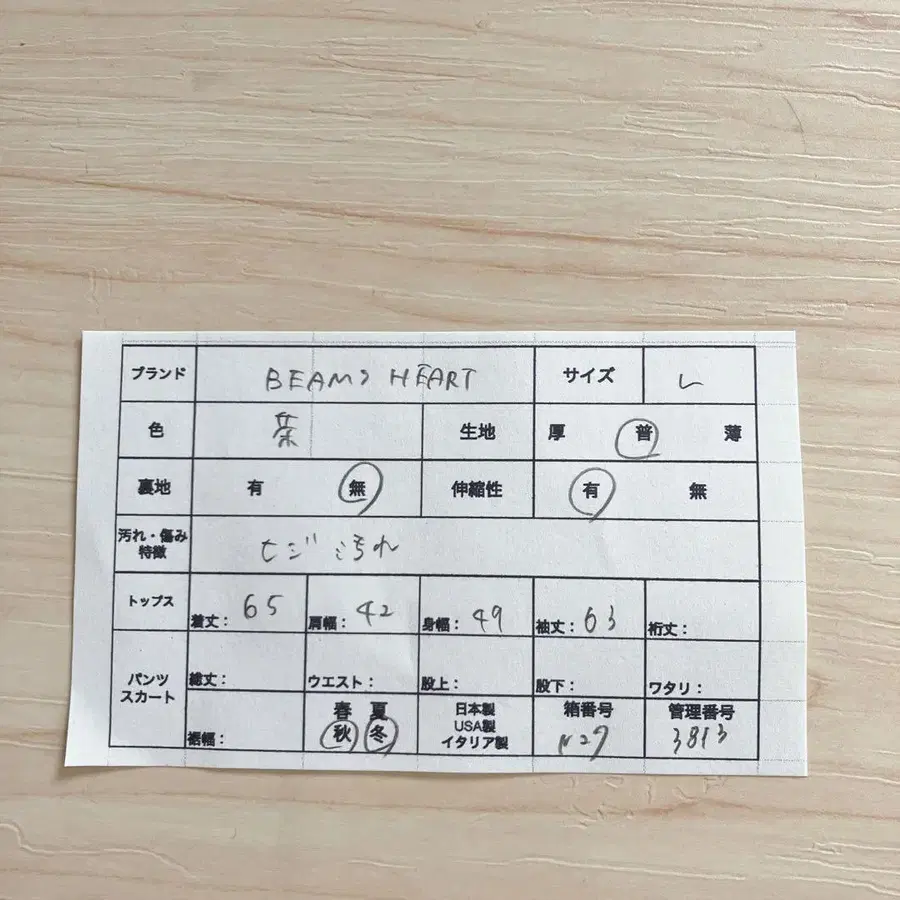 ブランド BEAMS HEART サイズ L
色 茶 生地 厚 普 薄
裏地 有 無 伸縮性 有 無
汚れ・傷み
特徴 ヒジ汚れ
トップス 着丈: 65 肩幅: 42 身幅: 49 袖丈: 63 裄丈:
パンツ
スカート
総丈: ウエスト: 股上: 股下: ワタリ:
裾幅:
春 夏
秋 冬
日本製
USA製
イタリア製
箱番号
N27
管理番号
3813